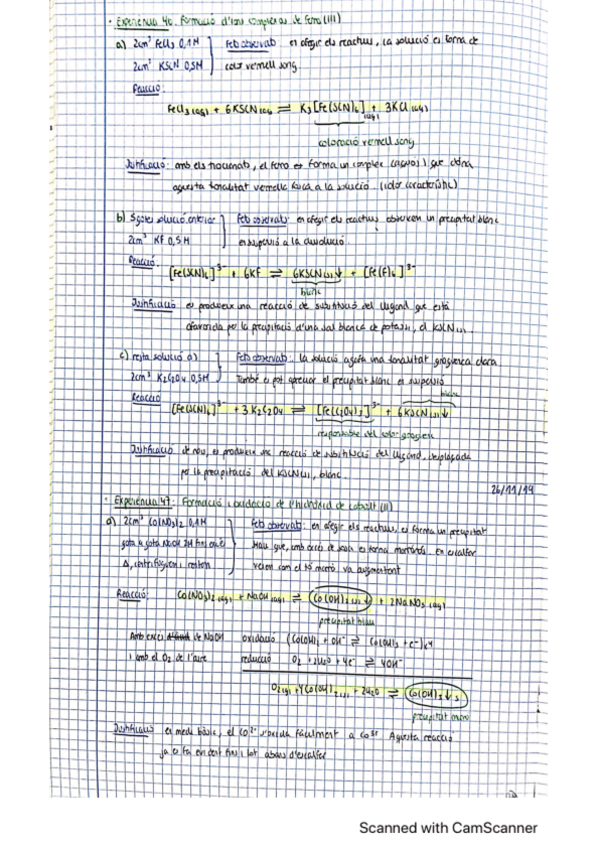 · Experiència 46. Formació d'ions complexos de ferro (III)
a) 2cm³ FeCl₃ 0,1M } Fets observats: en afegir els reactius, la solució es torna de
2cm³ KSCN 0,5M } color vermell sang
Reacció:
FeCl₃ (aq) + 6KSCN (aq) ⇌ K₃[Fe(SCN)₆] (aq) + 3KCl (aq)
coloració vermell sang
Justificació: amb els tiocianats, el ferro es forma un complex que dóna
aquesta tonalitat vermella fosca a la solució. (color característic)
b) 5 gotes solució anterior } Fets observats: en afegir els reactius observem un precipitat blanc
2cm³ KF 0,5M } en suspensió a la dissolució.
Reacció:
[Fe(SCN)₆]³⁻ + 6KF ⇌ 6KSCN (s)↓ + [Fe(F)₆]³⁻
blanc
Justificació: es produeix una reacció de substitució del lligand que està
afavorida per la precipitació d'una sal blanca de potassi, el KSCN (s).
c) resta solució a) } Fets observats: la solució agafa una tonalitat groguenca clara
2cm³ K₂C₂O₄ 0,5M } També es pot apreciar el precipitat blanc en suspensió
Reacció
blanc
[Fe(SCN)₆]³⁻ + 3 K₂C₂O₄ ⇌ [Fe(C₂O₄)₃]³⁻ + 6KSCN (s)↓
responsable del color groguenc
Justificació: de nou, es produeix una reacció de substitució del lligand, desplaçada
per la precipitació del KSCN (s), blanc.
26/11/19
· Experiència 47: Formació i oxidació de l'hidròxid de cobalt (II)
a) 2cm³ Co(NO₃)₂ 0,1M } Fets observats: en afegir els reactius, es forma un precipitat
gota a gota NaOH 2M fins excés } blau que, amb excés de sosa es torna marronós. En escalfar
Δ, centrifugació i rentem } veiem com el to marró va augmentant
Reacció: Co(NO₃)₂ (aq) + NaOH (aq) ⇌ Co(OH)₂ (s)↓ + 2NaNO₃ (aq)
precipitat blau
Amb excés de NaOH oxidació (Co(OH)₂ + OH⁻ ⇌ Co(OH)₃ + e⁻) x4
i amb el O₂ de l'aire reducció O₂ + 2H₂O + 4e⁻ ⇌ 4OH⁻
O₂ (g) + 4Co(OH)₂ (s) + 2H₂O ⇌ Co(OH)₃↓
precipitat marró
Justificació: en medi bàsic, el Co²⁺ s'oxida fàcilment a Co³⁺. Aquesta reacció
ja es fa en fred fins i tot abans d'escalfar
Scanned with CamScanner